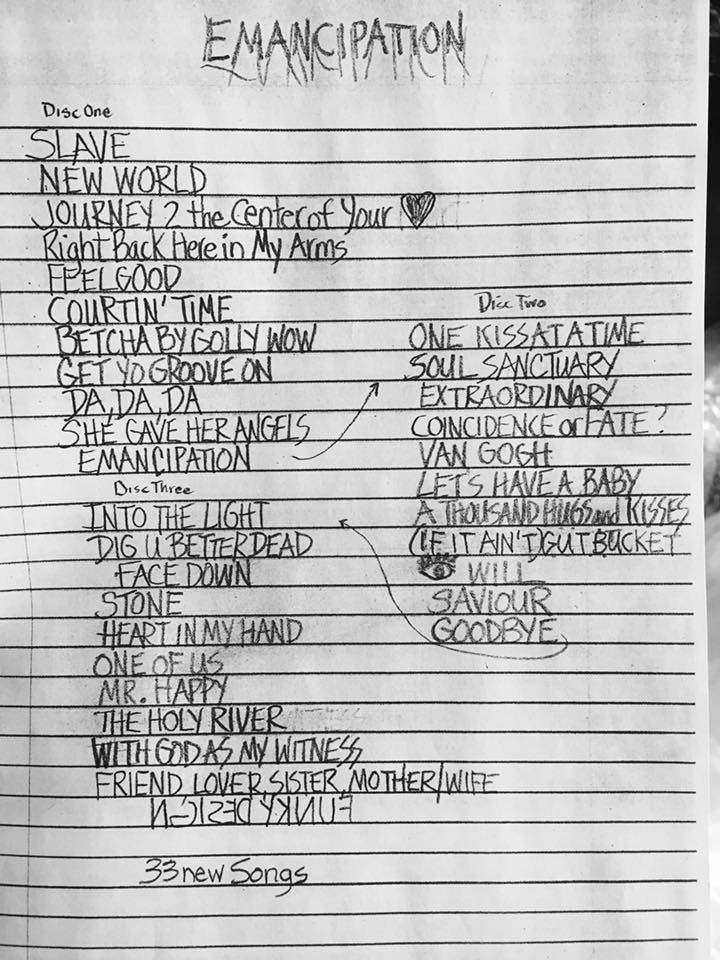 EMANCIPATION
Disc One
SLAVE
NEW WORLD
JOURNEY 2 the Center of Your ♥
Right Back Here in My Arms
FEEL GOOD
COURTIN' TIME
BETCHA BY GOLLY WOW
GET YO GROOVE ON
DA, DA, DA
SHE GAVE HER ANGELS
EMANCIPATION
Disc Two
ONE KISS AT A TIME
SOUL SANCTUARY
EXTRAORDINARY
COINCIDENCE or FATE?
VAN GOGH
LET'S HAVE A BABY
A THOUSAND HUGS and KISSES
(IF IT AIN'T) GUTBUCKET
👁 WILL
SAVIOUR
GOODBYE
Disc Three
INTO THE LIGHT
DIG U BETTER DEAD
FACE DOWN
STONE
HEART IN MY HAND
ONE OF US
MR. HAPPY
THE HOLY RIVER
WITH GOD AS MY WITNESS
FRIEND, LOVER, SISTER, MOTHER/WIFE
FUNKY DESIGN
33 new Songs